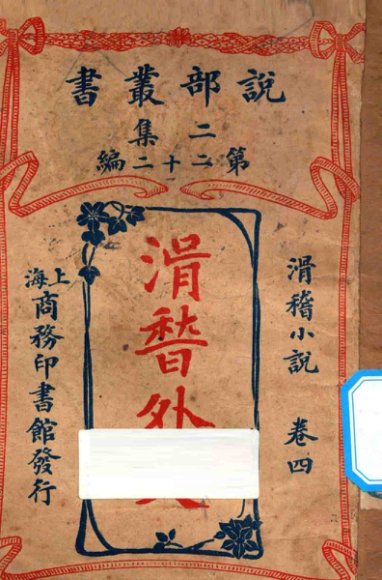 說部叢書
二集
第二十二編
滑稽小說 卷四
滑稽外
上海商務印書館發行